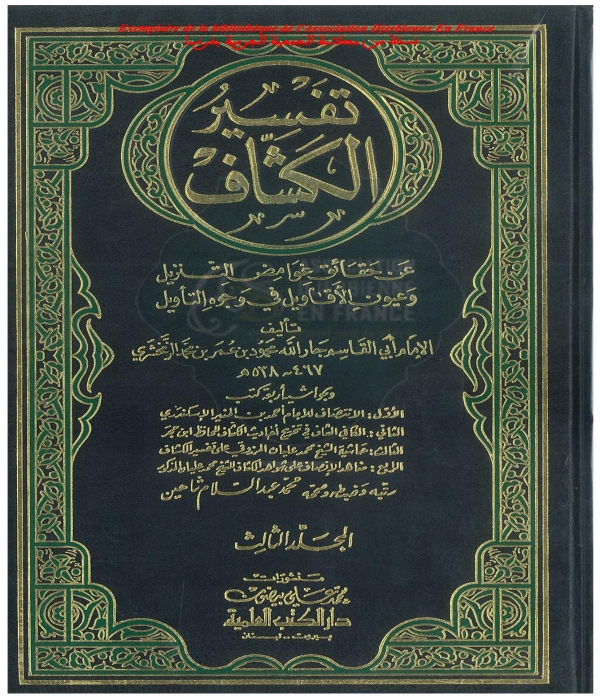 Exemplaire de la bibliothèque de l'Association Djezbienne En France
تفسير
الكشاف
عن حقائق غوامض التنزيل
وعيون الأقاويل في وجوه التأويل
تأليف
الإمام أبي القاسم جار الله محمود بن عمر بن محمد الزمخشري
٤٦٧ - ٥٣٨ هـ
وبحواشيه أربعة كتب
الأول: الانتصاف للإمام أحمد بن المنير الإسكندري
الثاني: الكافي الشاف في تخريج أحاديث الكشاف للحافظ ابن حجر
الثالث: حاشية الشيخ محمد عليان المرزوقي على تفسير الكشاف
الرابع: مشاهد الإنصاف على شواهد الكشاف للشيخ محمد عليان المذكور
رتبه وضبطه وصححه محمد عبد السلام شاهين
المجلد الثالث
منشورات
محمد علي بيضون
دار الكتب العلمية
بيروت - لبنان
EN FRANCE